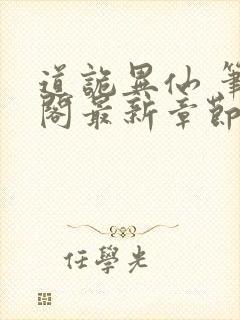 道詭異仙 筆
閣最新章節
任學光